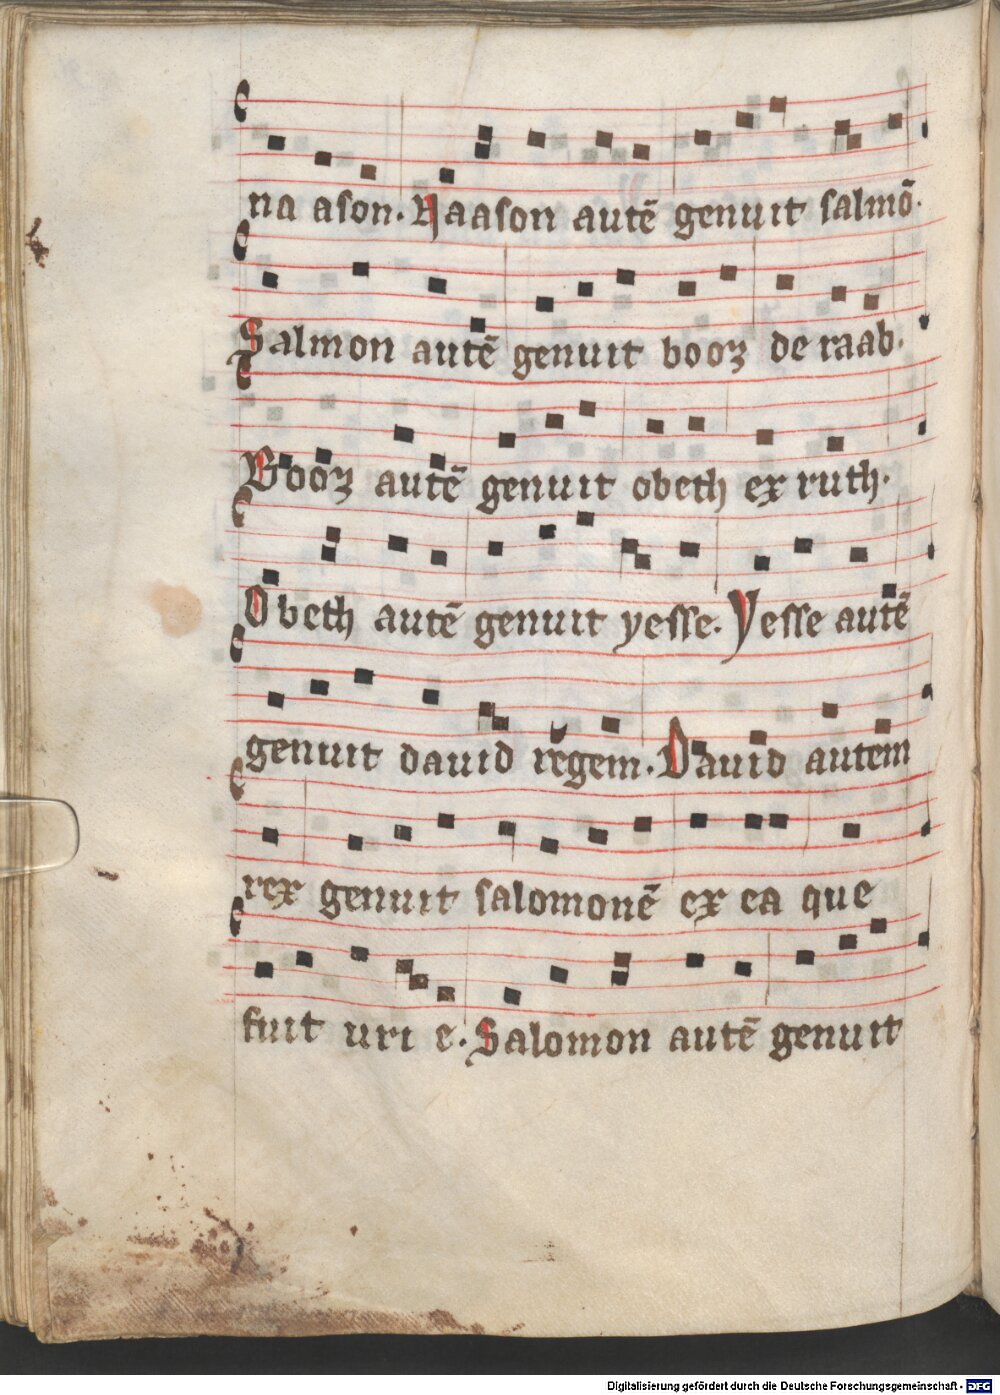 na ason. Naason autē genuit salmō.
Salmon autē genuit booz de raab.
Booz autē genuit obeth ex ruth.
Obeth autē genuit yesse. Yesse autē
genuit dauid regem. Dauid autem
rex genuit salomonē ex ea que
fuit uri e. Salomon autē genuit
Digitalisierung gefördert durch die Deutsche Forschungsgemeinschaft - DFG